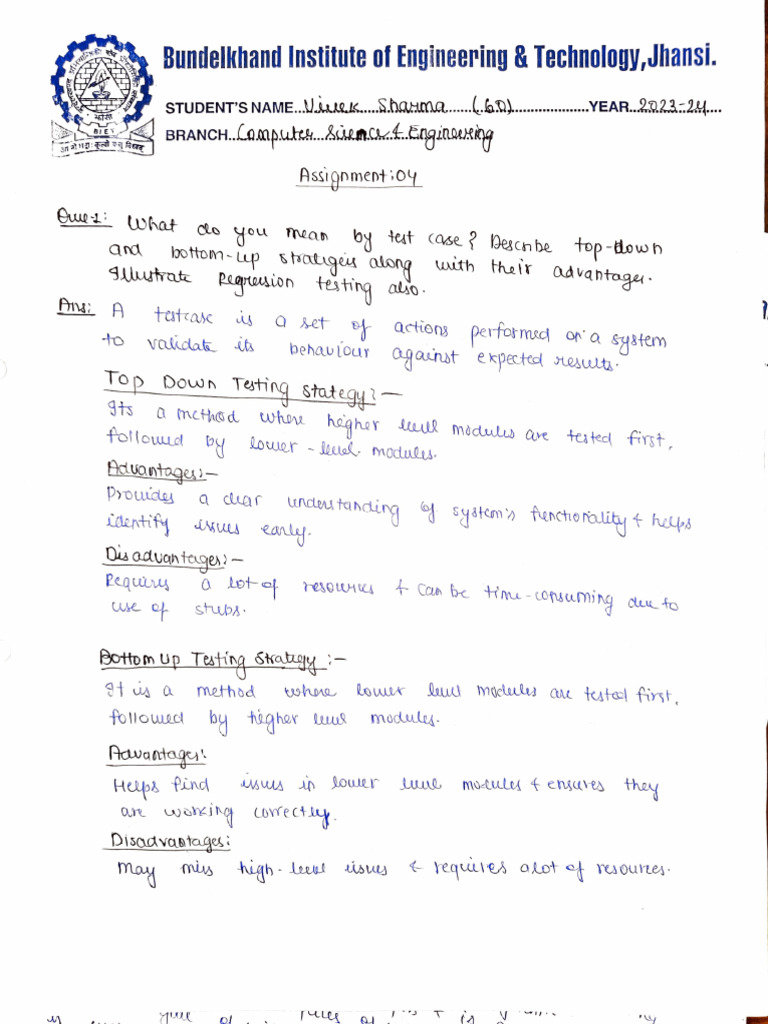 Bundelkhand Institute of Engineering & Technology, Jhansi.
STUDENT'S NAME...Vivek Sharma (60)...YEAR..2023-24....
BRANCH..Computer Science & Engineering
BIET
Assignment:04
Que-1: What do you mean by test case? Describe top-down
and bottom-up strategies along with their advantages.
Illustrate Regression testing also.
Ans: A testcase is a set of actions performed on a system
to validate its behaviour against expected results.
Top Down Testing Stategy:-
Its a method where heigher level modules are tested first,
followed by lower-level modules.
Advantages:-
Provides a clear understanding of system's functionality & helps
identify issues early.
Disadvantages:-
Requires a lot of resources & can be time-consuming due to
use of stubs.
Bottom Up Testing Strategy :-
It is a method where lower level modules are tested first,
followed by higher level modules.
Advantages:
Helps find issues in lower level modules & ensures they
are working correctly.
Disadvantages:
May miss high-level issues & requires a lot of resources.